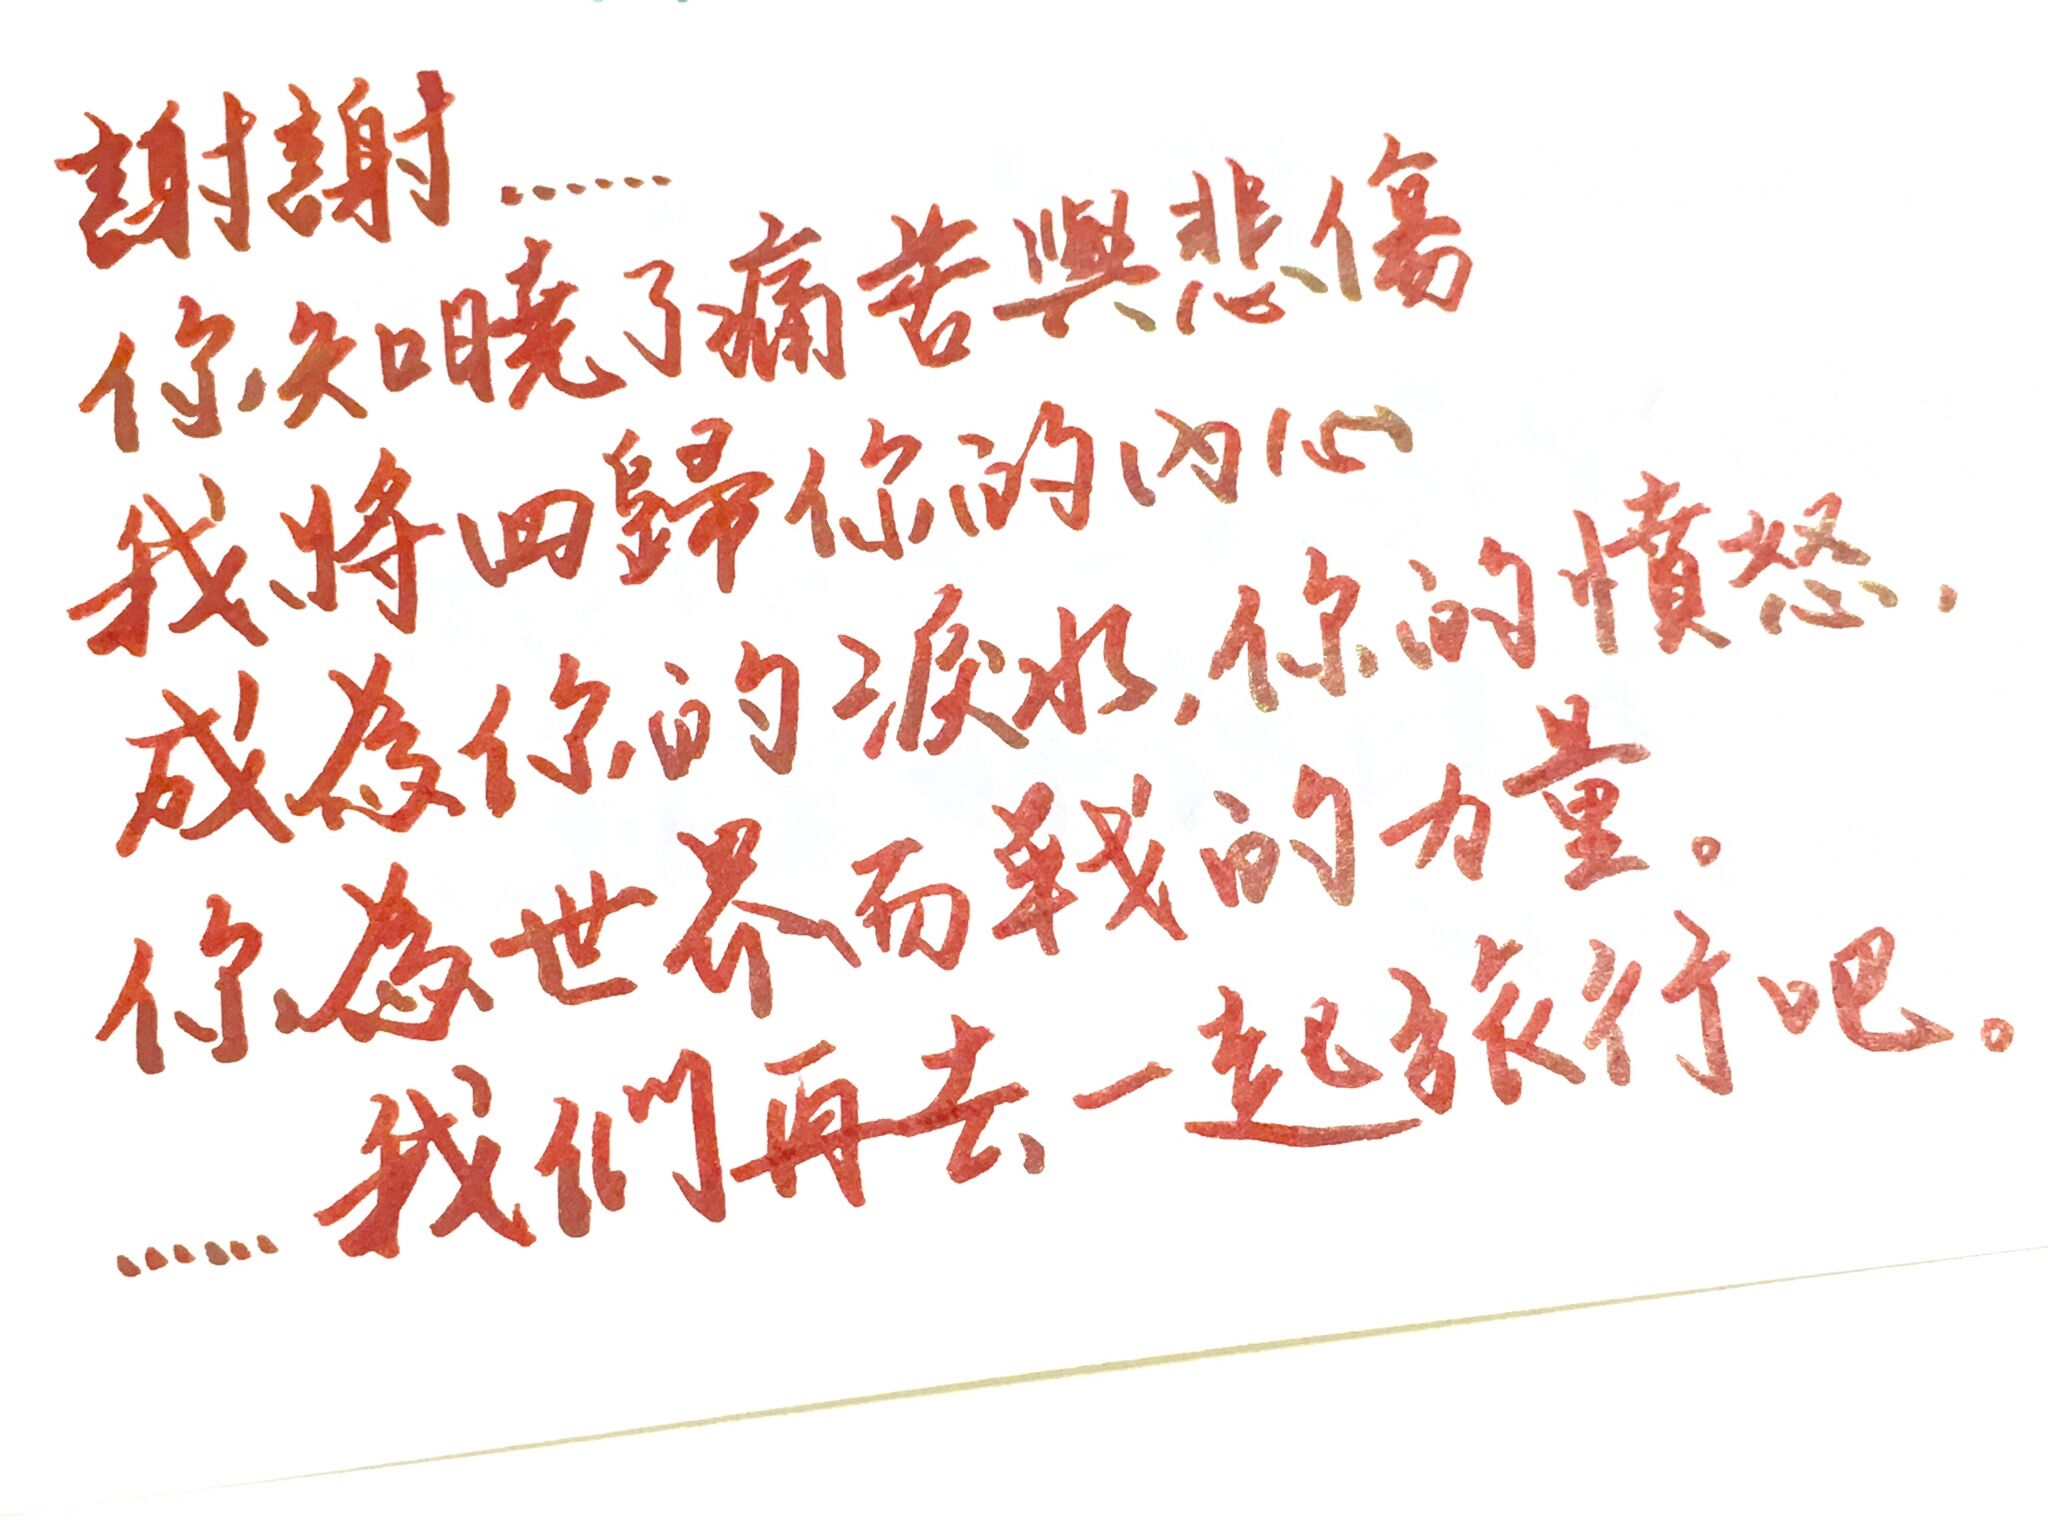 謝謝……
你知曉了痛苦與悲傷
我將回歸你的內心
成為你的淚水,你的憤怒,
你為世界而戰的力量。
……我們再去一起旅行吧。